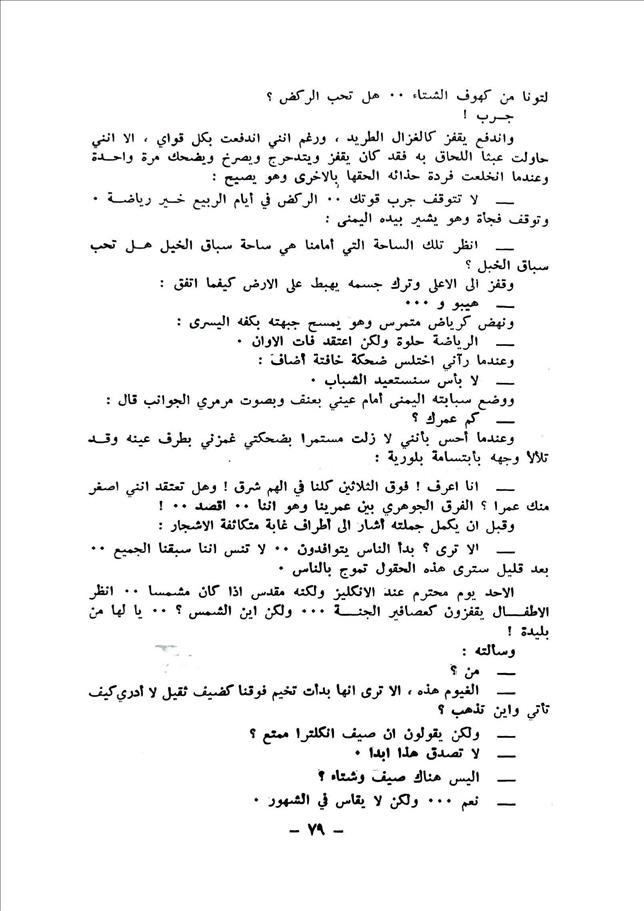 لتونا من كهوف الشتاء ٠٠ هل تحب الركض ؟
جرب !
واندفع يقفز كالغزال الطريد ، ورغم انني اندفعت بكل قواي ، الا انني
حاولت عبثا اللحاق به فقد كان يقفز ويتدحرج ويصرخ ويضحك مرة واحدة
وعندما انخلعت فردة حذائه الحقها بالاخرى وهو يصيح :
— لا تتوقف جرب قوتك ٠٠ الركض في أيام الربيع خير رياضة ٠
وتوقف فجأة وهو يشير بيده اليمنى :
— انظر تلك الساحة التي أمامنا هي ساحة سباق الخيل هل تحب
سباق الخيل ؟
وقفز الى الاعلى وترك جسمه يهبط على الارض كيفما اتفق :
— هيبو و ٠٠٠
ونهض كرياض متمرس وهو يمسح جبهته بكفه اليسرى :
— الرياضة حلوة ولكن اعتقد فات الاوان ٠
وعندما رآني اختلس ضحكة خافتة أضاف :
— لا بأس سنستعيد الشباب ٠
ووضع سبابته اليمنى أمام عيني بعنف وبصوت مرمري الجوانب قال :
— كم عمرك ؟
وعندما أحس بأنني لا زلت مستمرا بضحكتي غمزني بطرف عينه وقد
تلألأ وجهه بأبتسامة بلورية :
— انا اعرف ! فوق الثلاثين كلنا في الهم شرق ! وهل تعتقد انني اصغر
منك عمرا ؟ الفرق الجوهري بين عمرينا وهو اننا ٠٠ اقصد ٠٠ !
وقبل ان يكمل جملته أشار الى أطراف غابة متكاثفة الاشجار :
— الا ترى ؟ بدأ الناس يتوافدون ٠٠ لا تنس اننا سبقنا الجميع ٠٠
بعد قليل سترى هذه الحقول تموج بالناس ٠
الاحد يوم محترم عند الانكليز ولكنه مقدس اذا كان مشمسا ٠٠ انظر
الاطفال يقفزون كعصافير الجنة ٠٠٠ ولكن اين الشمس ؟ ٠٠ يا لها من
بليدة !
وسألته :
— من ؟
— الغيوم هذه ، الا ترى انها بدأت تخيم فوقنا كضيف ثقيل لا أدري كيف
تأتي واين تذهب ؟
— ولكن يقولون ان صيف انكلترا ممتع ؟
— لا تصدق هذا ابدا ٠
— اليس هناك صيف وشتاء ؟
— نعم ٠٠٠ ولكن لا يقاس في الشهور ٠
– ٧٩ –